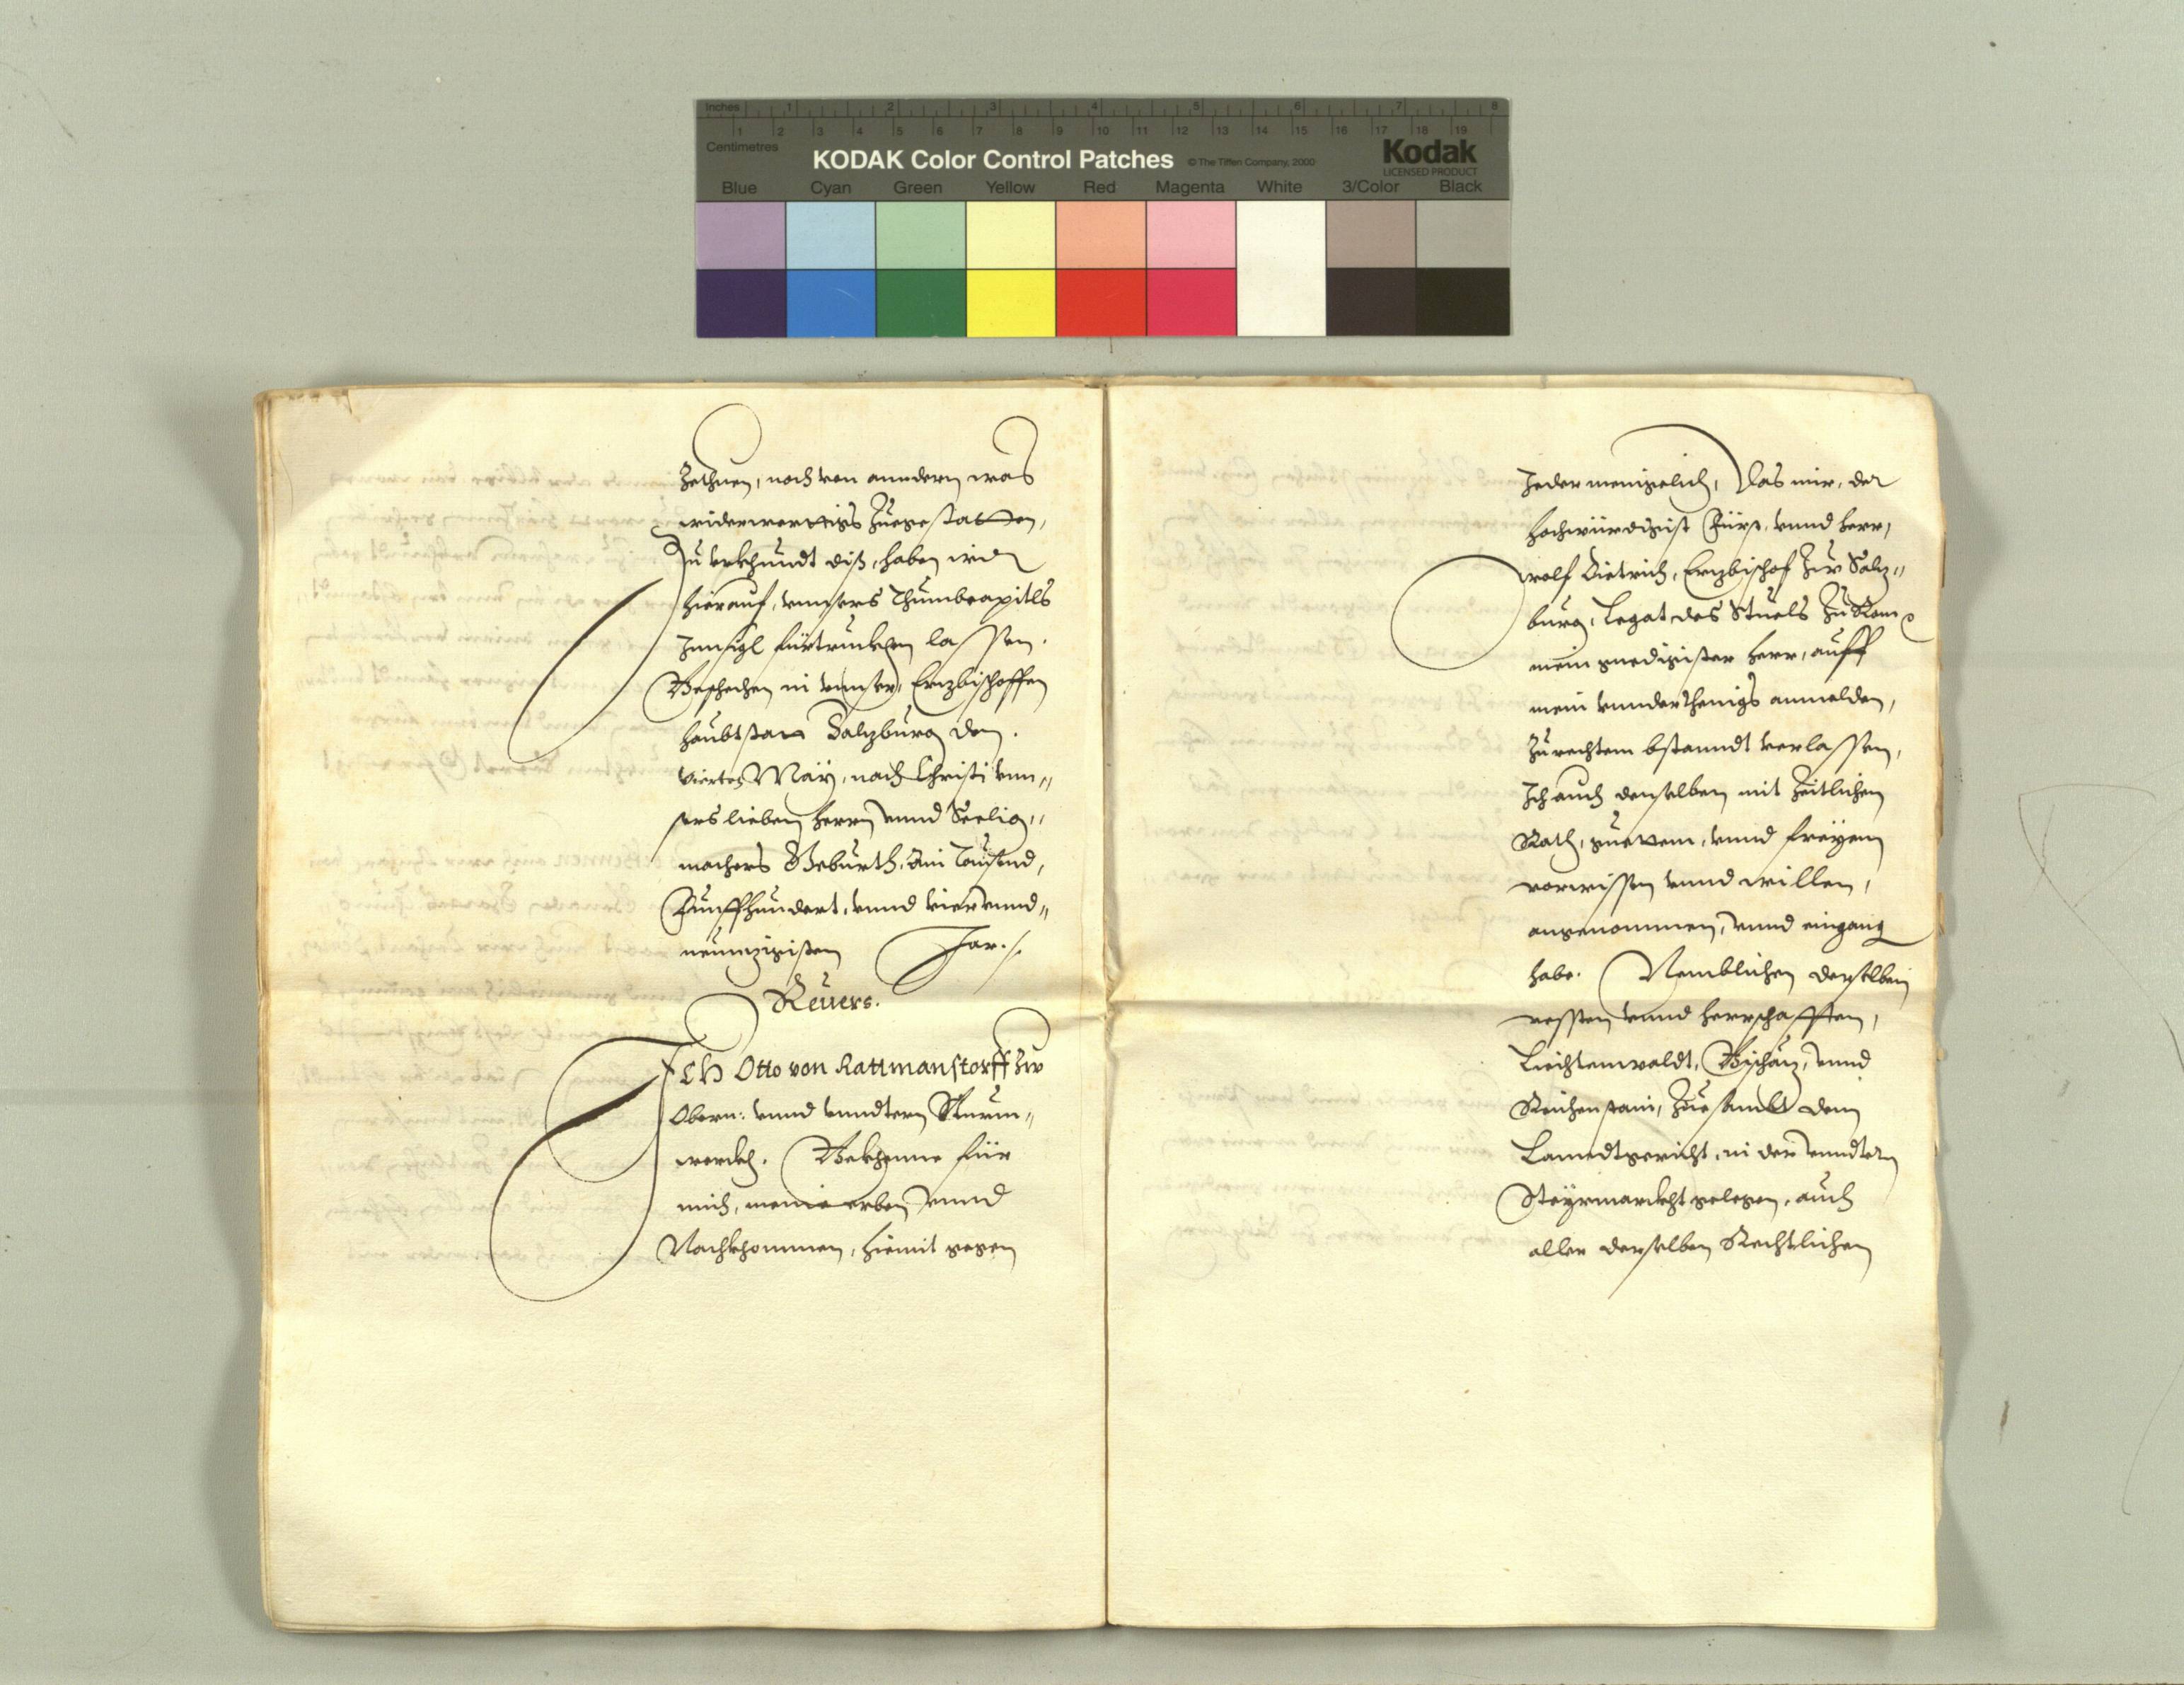 Inches 1 2 3 4 5 6 7 8
1 2 3 4 5 6 7 8 9 10 11 12 13 14 15 16 17 18 19
Centimetres
KODAK Color Control Patches © The Tiffen Company, 2000 Kodak
LICENSED PRODUCT
Blue Cyan Green Yellow Red Magenta White 3/Color Black
Zethuen, noch von anndern was
widerwerttigs Zuegestatten,
Zu vrkhundt diß, haben wir
hierauf, vnnsers Thumbcapitls
Innsigl fürtruckhen lassen.
Geschechen in vnnser, Ernzbischoffen
haubtstat Salzburg den.
Vierten Maÿ, nach Christi vnn„
sers lieben herrn vnnd Seelig„
machers Geburth, Ain Tausend,
Fünffhundert, vnnd viervnnd„
neunzigisten Jar./.
Reuers.
Ich Otto von Rattmanstorff zw
Obern: vnnd vnndtern Sturm„
werckh. Bekhenne für
mich, meine erben vnnd
Nachkhommen, hiemit gegen
Jedermenigelich, Das mir, der
hochwürdigist Fürst, vnnd herr,
wolf Dietrich, Ernzbischof Zw Salz„
burg, Legat des Stuels Zu Rom
mein gnedigister herr, auff
mein vnnderthenigs anmelden,
Zu rechtem bstanndt verlassen,
Ich auch denselben mit Zeitlichen
Rath, guettem, vnnd freÿem
vorwissen vnnd willen,
angenommen, vnnd eingang
habe. Nemblichen derselben
vessten vnnd herrschafften,
Liechtenwaldt, Gischäz, vnnd
Reichenstain, Zuesambt dem
Lanndtgericht, in der vnndtern
Steÿrmarckht gelegen, auch
aller derselben Rechtlichen